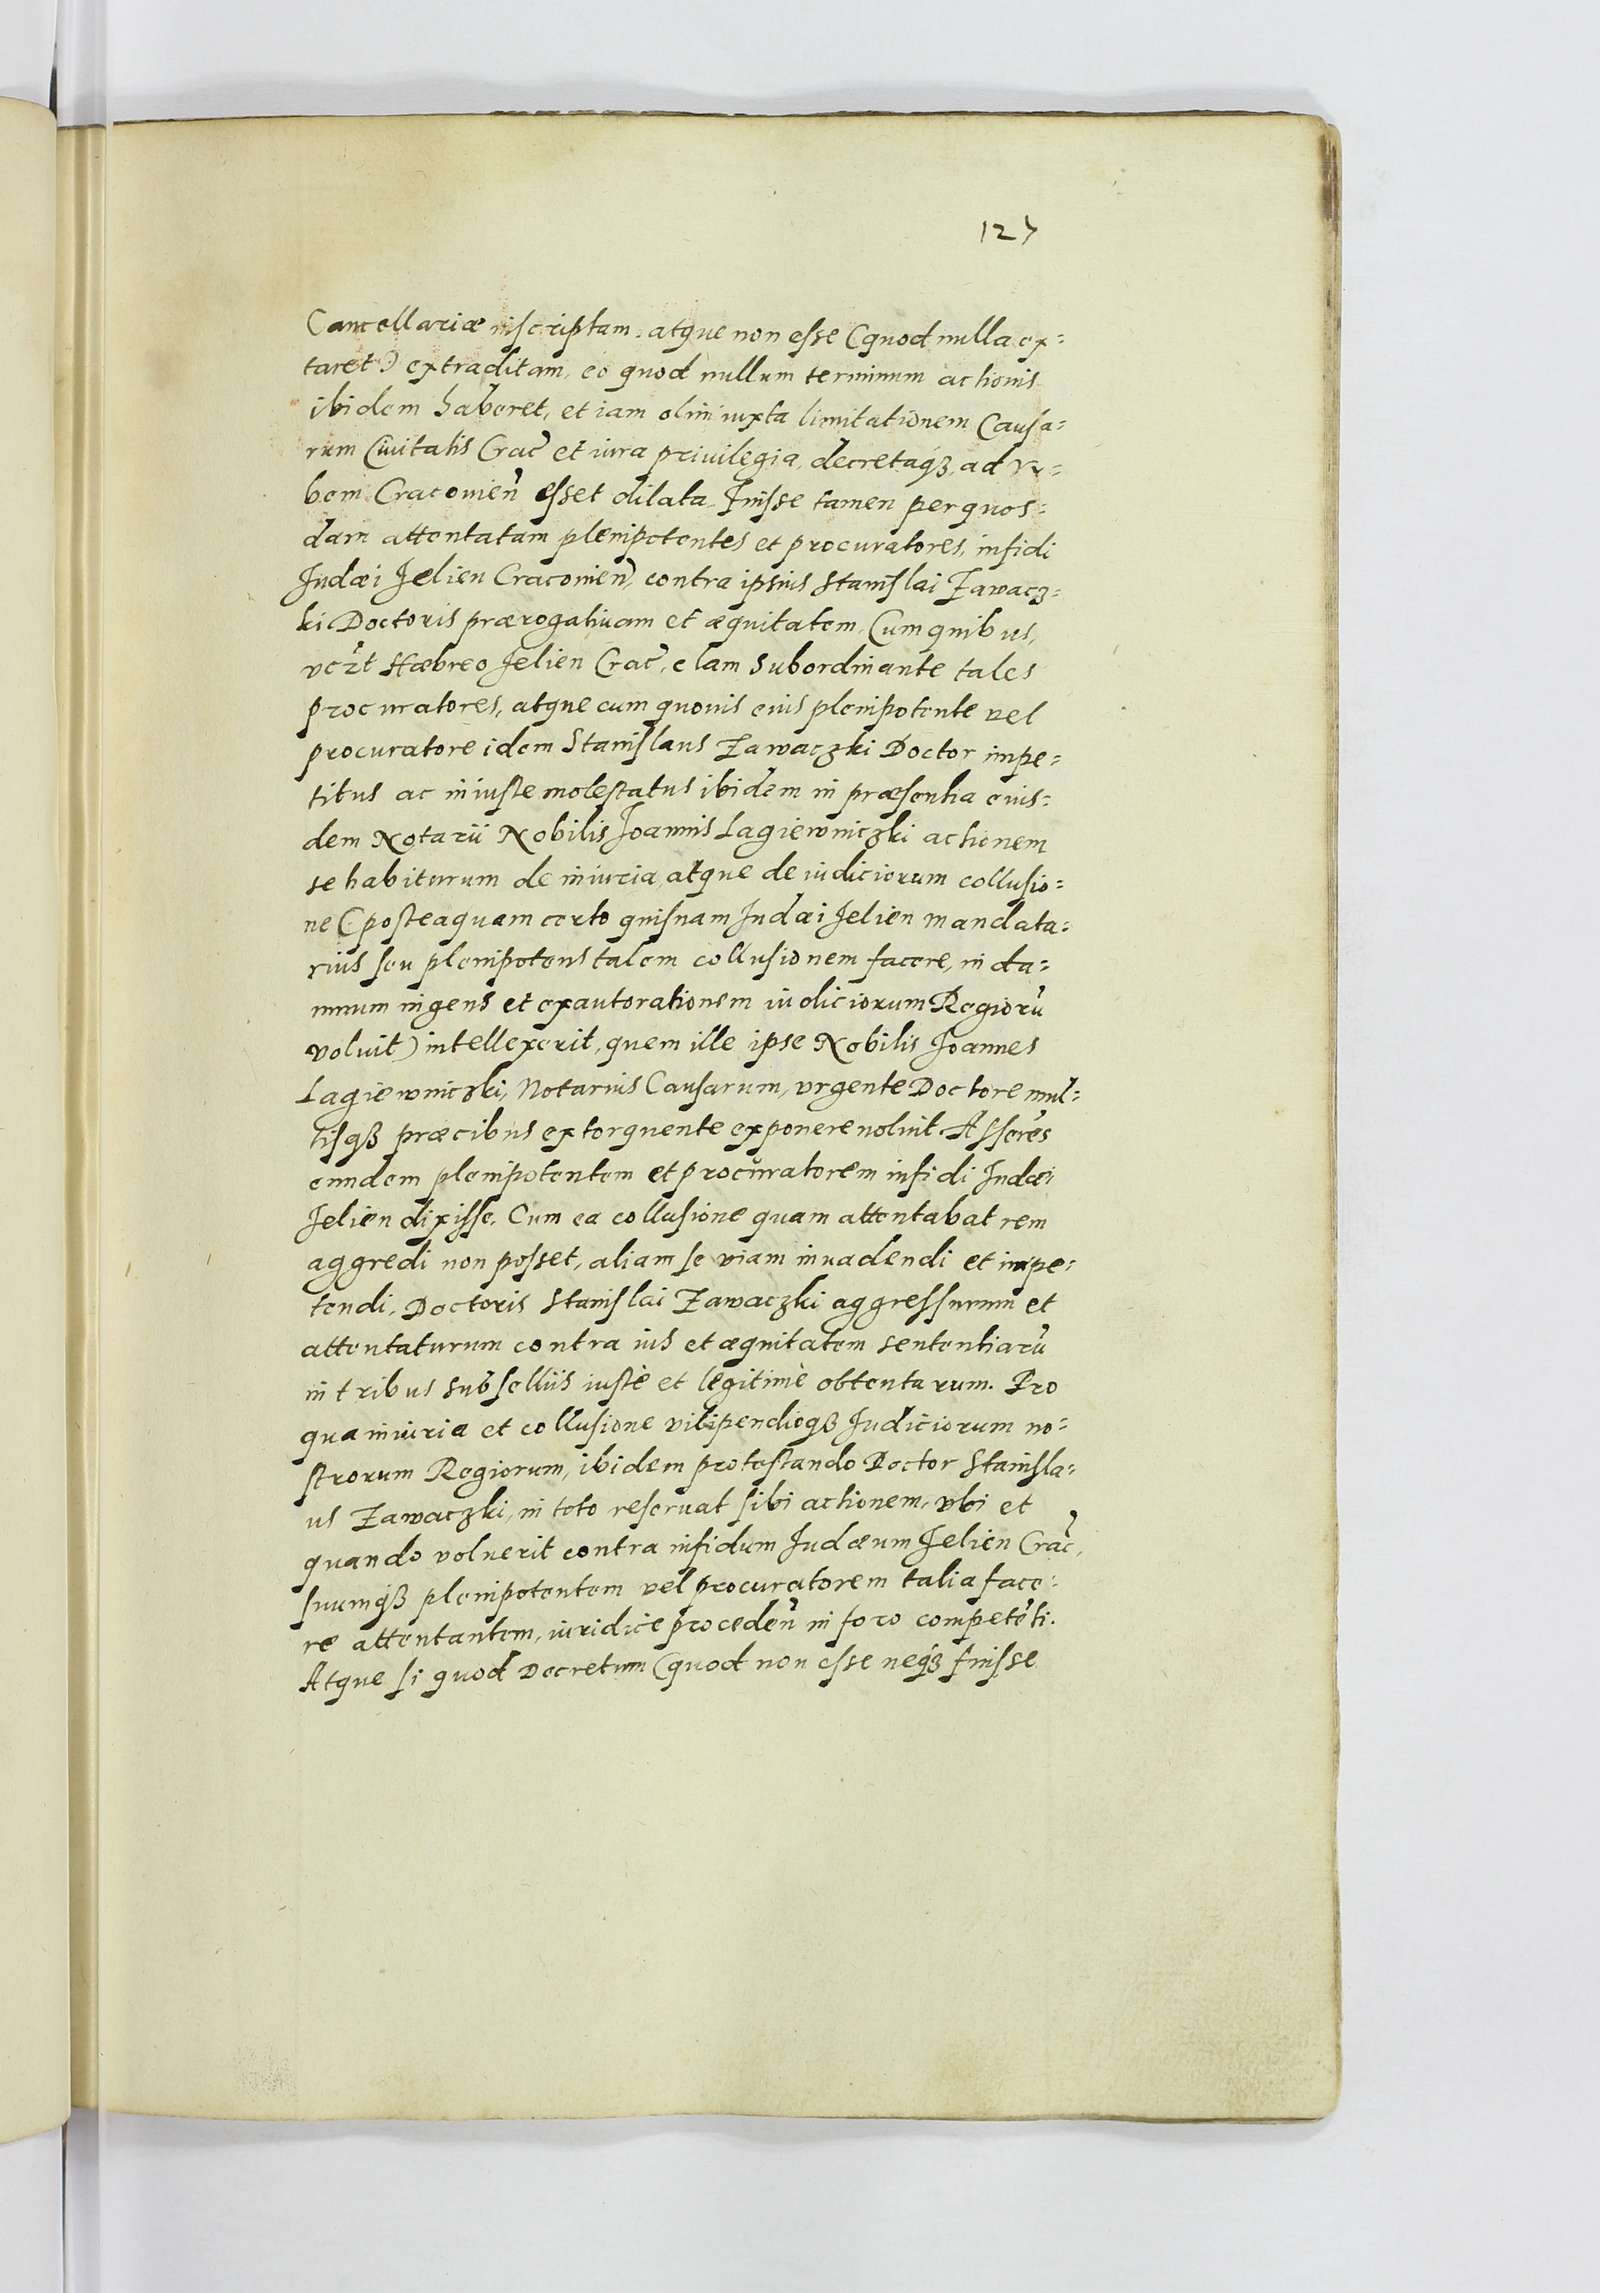 127
Cancellariæ inscriptam, atque non esse (quod nulla ex=
taret) extraditam, eo quod nullum terminum actionis
ibidem haberet, et iam olim iuxta limitationem Causa=
rum Ciuitatis Crac̃ et iura priuilegia, decretaqȝ, ad Vr=
bem Cracouien̄ esset dilata. Fuisse tamen per quos=
dam attentatam plenipotentes et procuratores, infidi
Iudæi Jelien Cracouien̄, contra ipsius Stanislai Zawacz=
ki Doctoris prærogatiuam et æquitatem. Cum quibus,
Hæbreo Jelien Crac̃, clam subordinante tales
procuratores, atque cum quouis eius plenipotente vel
procuratore idem Stanislaus Zawaczki Doctor impe=
titus ac iniuste molestatus ibidem in præsentia eius=
dem Notarii Nobilis Joannis Lagiewniczki actionem
se habiturum de iniuria, atque de iudiciorum collusio=
ne (posteaquam certo quisnam Iudæi Jelien mandata=
rius seu plenipotens talem collusionem facere, in da=
mnum ingens et exautorationem iudiciorum Regiorū
voluit) intellexerit, quem ille ipse Nobilis Joannes
Lagiewniczki, Notarius Causarum, vrgente Doctore mul=
tisqȝ præcibus extorquente exponere noluit. Asserēs
eundem plenipotentem et procŭratorem infidi Iudæi
Jelien dixisse. Cum ea collusione quam attentabat rem
aggredi non posset, aliam se viam inuadendi et impe=
tendi, Doctoris Stanislai Zawaczki aggressurum et
attentaturum contra ius et æquitatem sententiarū
in tribus subselliis iustè et legitimè obtentarum. Pro
qua iniuria et collusione vilipendioqȝ Iudiciorum no=
strorum Regiorum, ibidem protestando Doctor Stanisla=
us Zawaczki, in toto reseruat sibi actionem, vbi et
quando voluerit contra infidum Iudæum Jelien Crac̃,
suumqȝ plenipotentem vel procuratorem talia face=
re attentantem, iuridice proceden̄ in foro competēti.
Atque si quod Decretum (quod non esse neqȝ fuisse